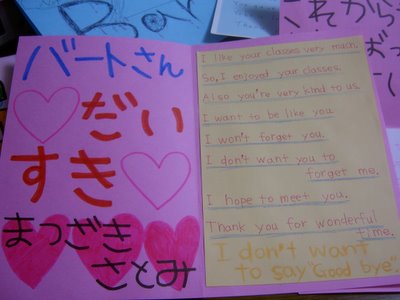 バートさん
だい
すき
まつざき
さとみ
I like your classes very much.
So, I enjoyed your classes.
Also you're very kind to us.
I want to be like you
I won't forget you.
I don't want you to
forget me.
I hope to meet you.
Thank you for wonderful
time.
I don't want
to say "Good bye"
これから